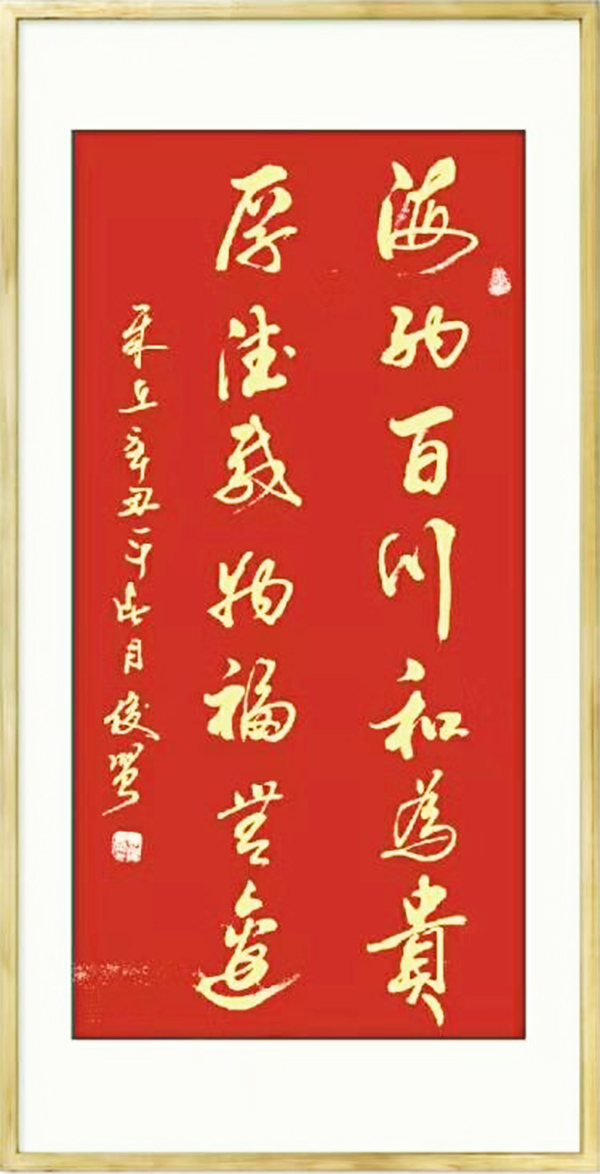 海納百川和為貴
厚德載物福無邊
辛丑年月俊